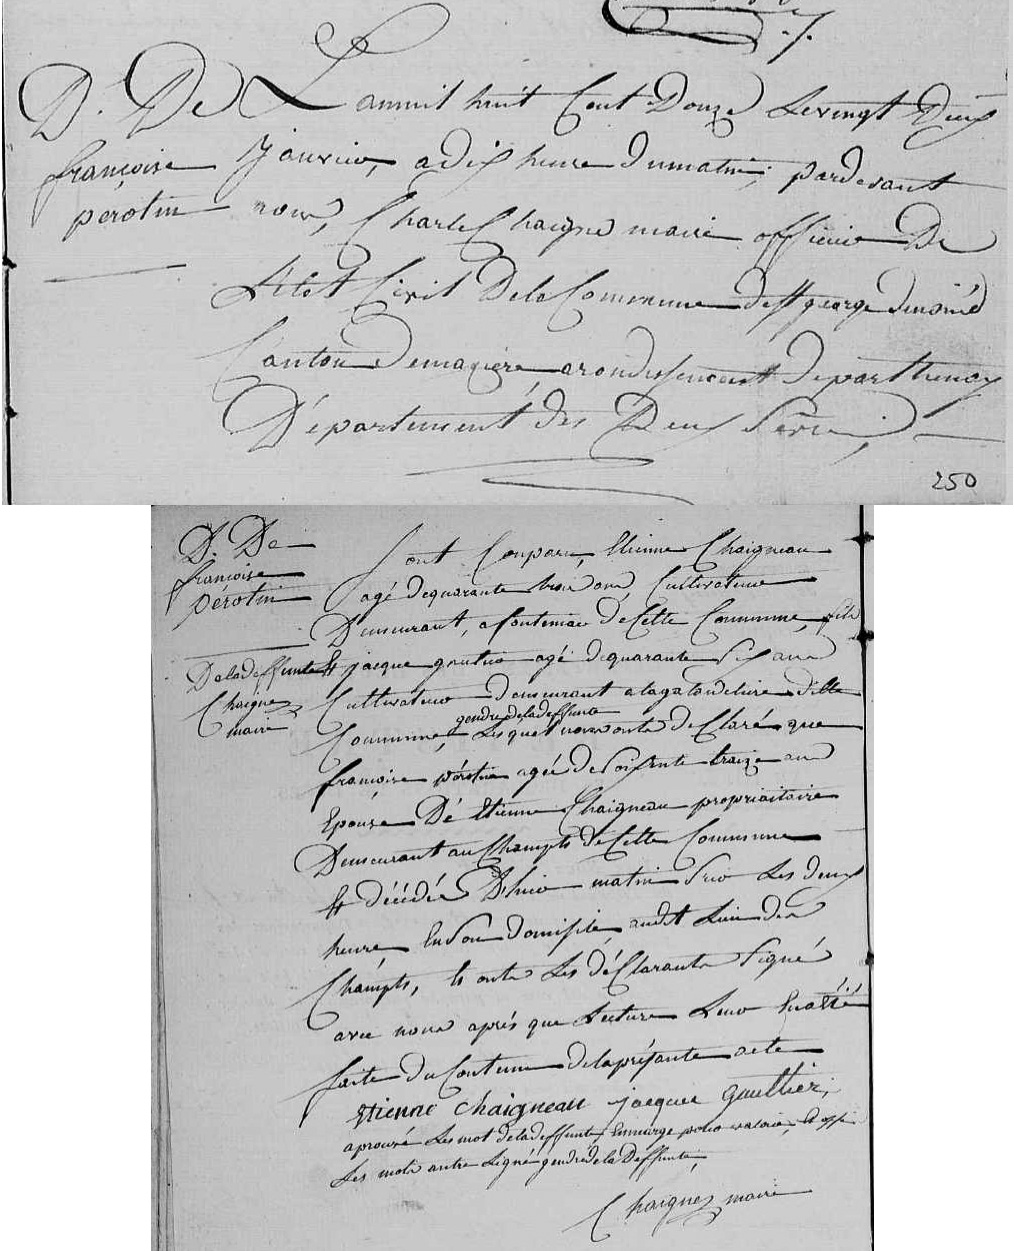 D. De
françoise
pérotin
L'anmil huit Cent Douze Le vingt Deux
Janvier, a dix heure du matin, pardevant
nous, Charle Chaigne maire officier De
L'état Civil De la Commune de st george de noiné
Canton de mazière arondissement de parthenay
Département des Deux Sevre,
250
D. De
françoise
pérotin
De la deffunte
Chaigne
maire
Sont Conparu, Etienne Chaigneau
agé de quarante trois ans, Cultivateur
Demeurant, a fonteniou de Cette Commune, fils
Et jacque gautier agé de quarante Six ans
Cultivateur demeurant a la gataudeliere ditte
gendre de la deffunte
Commune, Lesquel nous onts de Claré que
françoise pérotin agée de Soisente traize ans
Epouse De Etienne Chaigneau propriaitaire
Demeurant au Champts de Cette Commune
Et décédée D'hier matin Sur Les deux
heure En Son domisile audit Lieu des
Champts, Et onts Les déClarants Signé
avec nous aprés que Lecture Leur En a été
faite du Contenu de la présante acte
Etienne Chaigneau jacque gaultier,
aprouvé Les mot de la deffunte En marge pour valoir, Et ossi
Les mots antre Ligne gendre de la Deffunte,
Chaigne maire